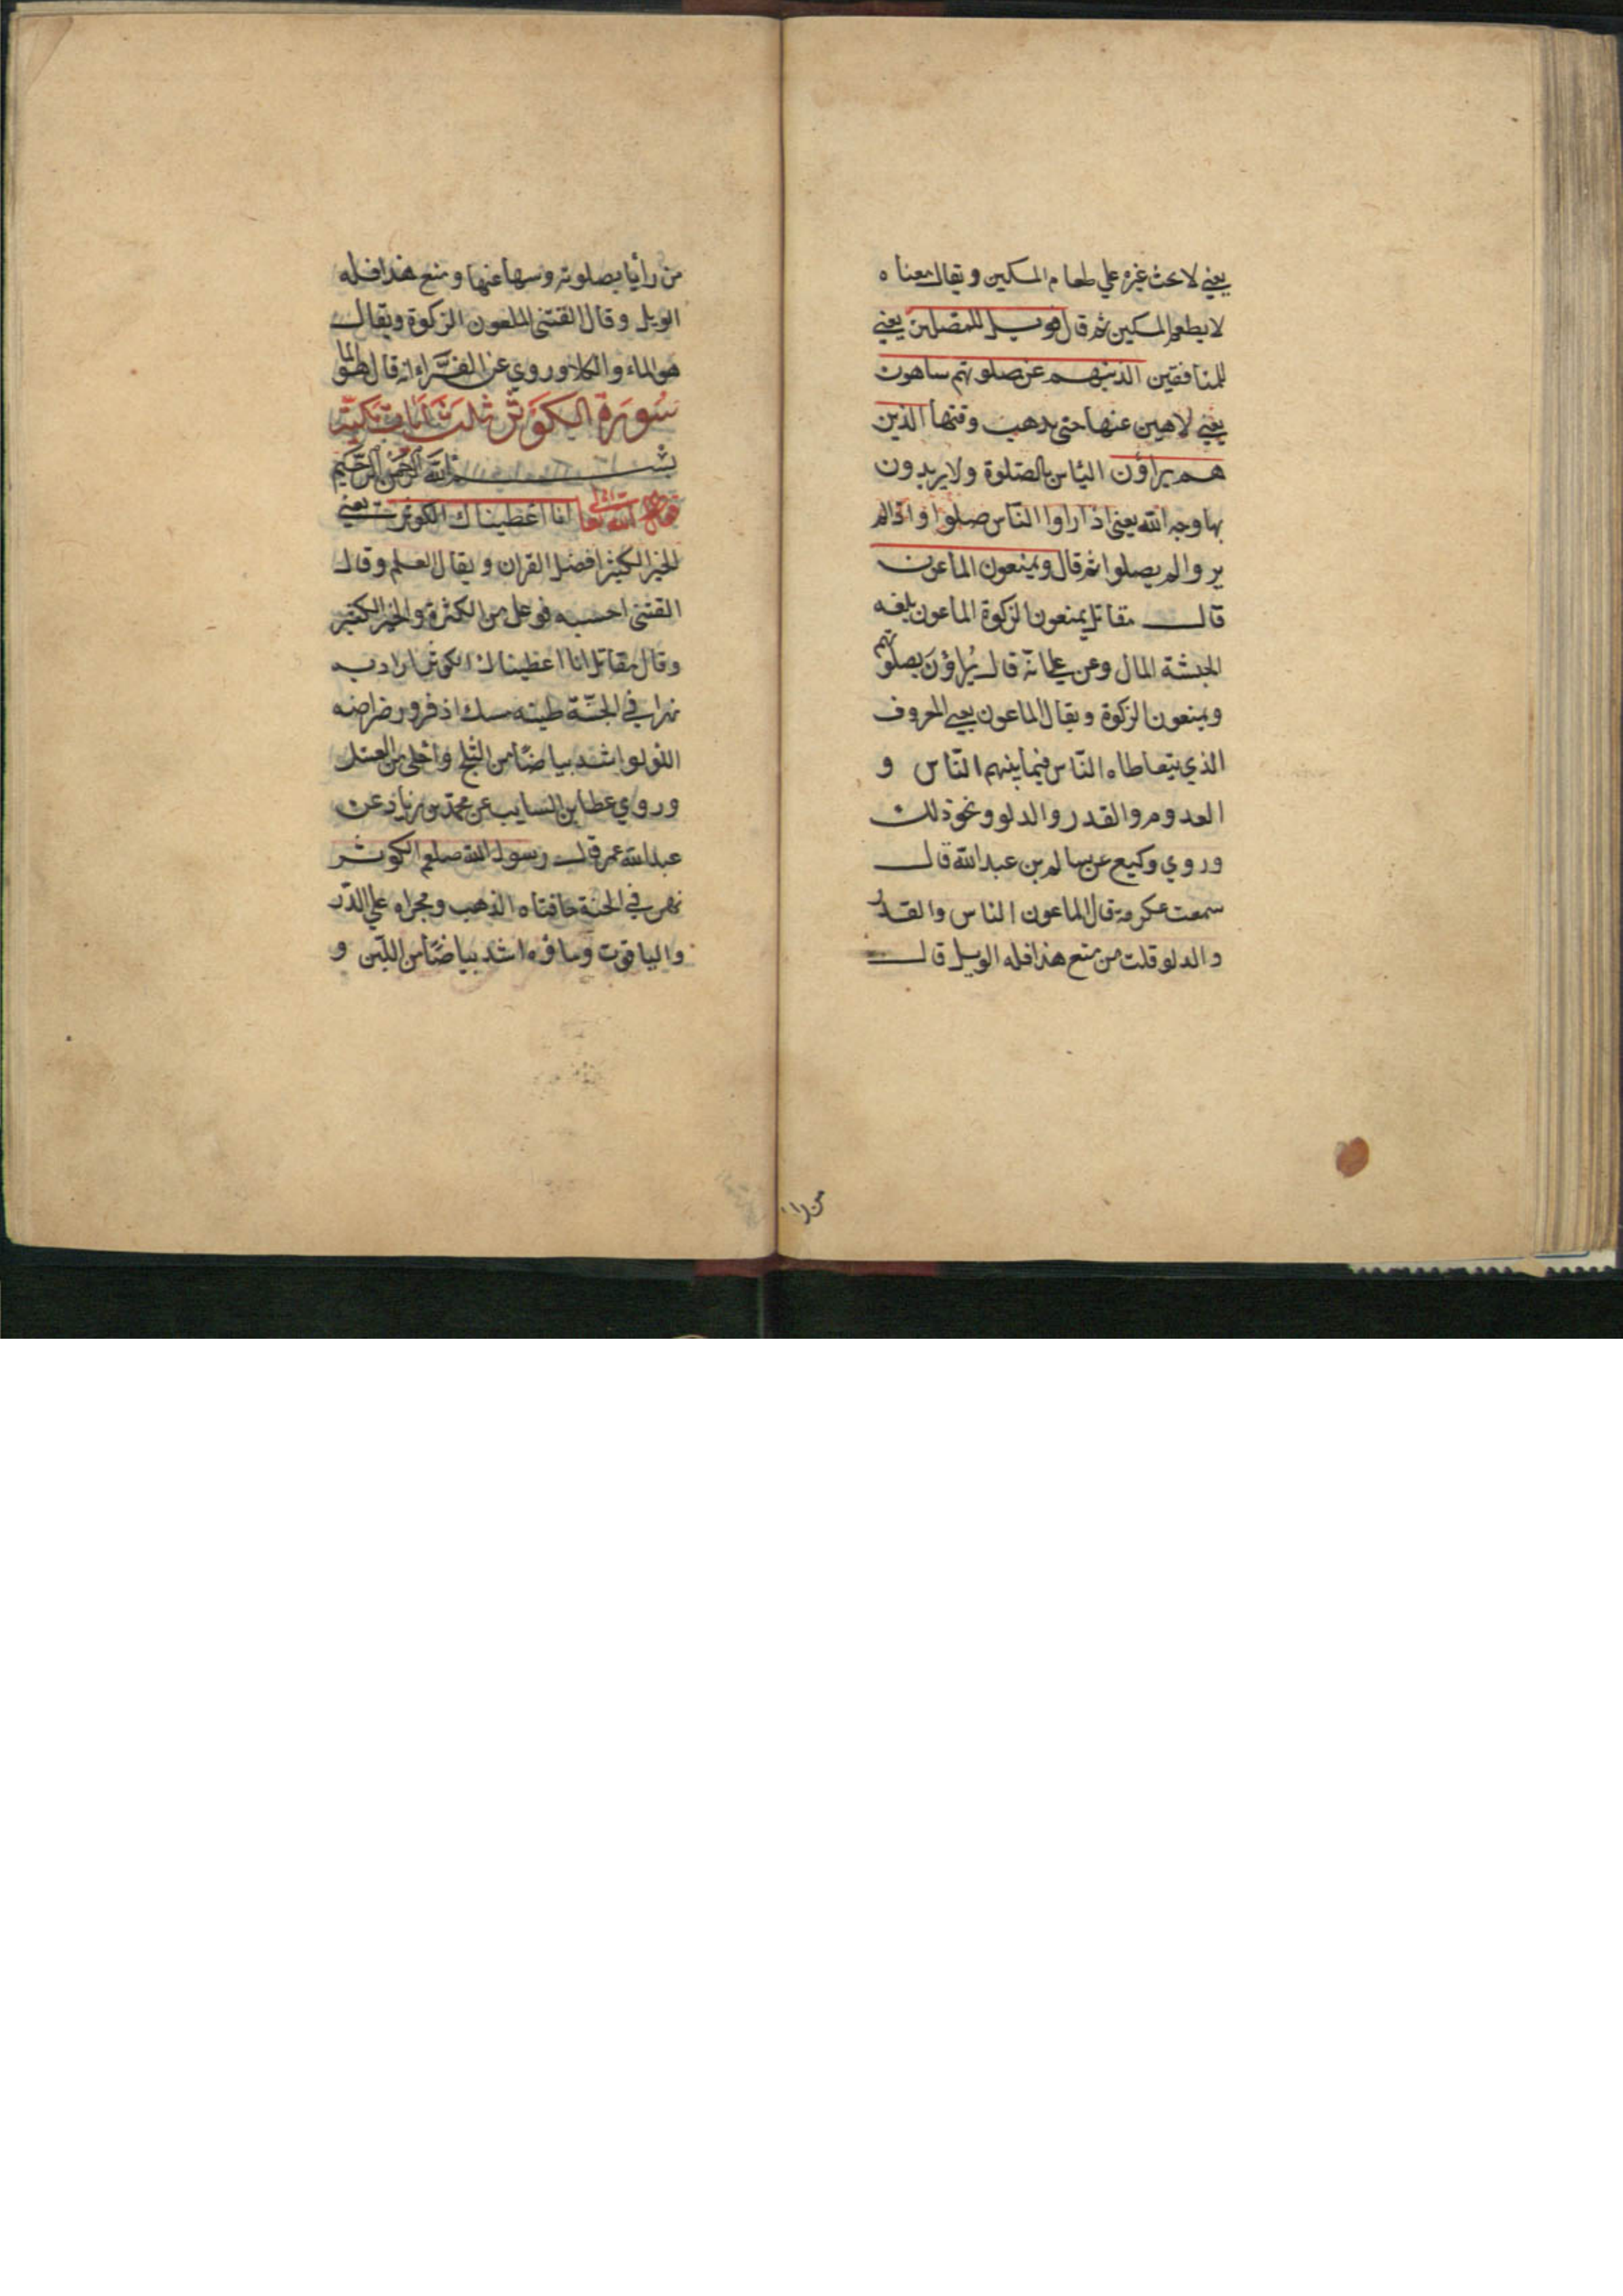 يعني لا يحث غيره علي طعام المسكين ويقال معناه
لا يطعم المسكين ثم قال فويل للمصلين يعني
للمنافقين الذين هم عن صلوتهم ساهون
يعني لاهين عنها حتي يذهب وقتها الذين
هم يراؤن الناس بالصلوة ولا يريدون
بها وجه الله يعني اذا راوا الناس صلوا واذا لم
يروا لم يصلوا ثم قال ويمنعون الماعون
قال مقاتل يمنعون الزكوة الماعون بلغه
الحبشة المال وعن قال يراؤن بصلوتهم
ويمنعون الزكوة ويقال الماعون يعني المعروف
الذي يتعاطاه الناس فيما بينهم الناس و
العدوم والقدر والدلو ونحو ذلك
وروي وكيع عن سالم بن عبدالله قال
سمعت عكرمة قال الماعون الناس والقدر
والدلو قلت من منع هذا فله الويل قال
من را
من رأيا بصلوته وسها عنها ومنع هذا فله
الويل وقال القتبي الماعون الزكوة ويقال
هو الماء والكلا وروي عن الفرّاء انه قال هو الما
سورة الكوثر ثلث ايات مكية
بسم الله الرحمن الرحيم
الله تعا انا اعطيناك الكوثر يعني
الخير الكثير افضل القران ويقال العلم وقال
القتبي احسبه فوعل من الكثرة والخير الكثير
وقال مقاتل انا اعطيناك الكوثر اراد به
نهرا في الجنّة طينه مسك اذفر ورضراضه
اللؤلؤ اشد بياضًا من الثلج واحلى من العسل
وروي عطا بن السايب عن محارب بن عن
عبدالله عمر قال رسول الله صلعم الكوثر
نهر في الجنة حافتاه الذهب ومجراه علي الدّر
والياقوت وماؤه اشد بياضًا من اللبن و